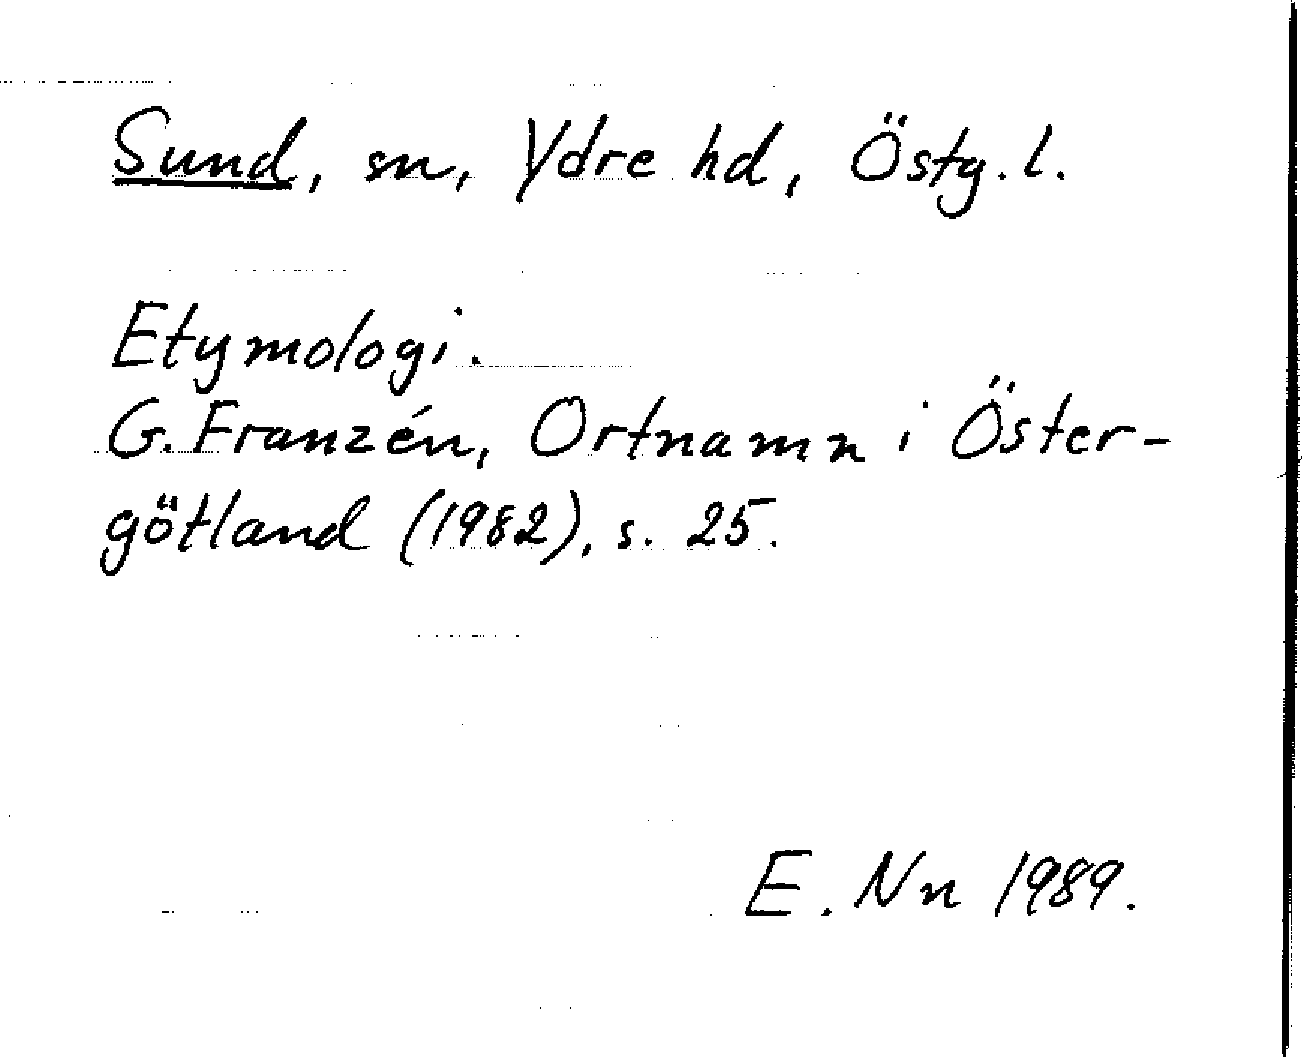 Sund, sn, Ydre hd, Östg. l.
Etymologi.
G. Franzén, Ortnamn i Öster-
götland (1982), s. 25.
E. Nn 1989.